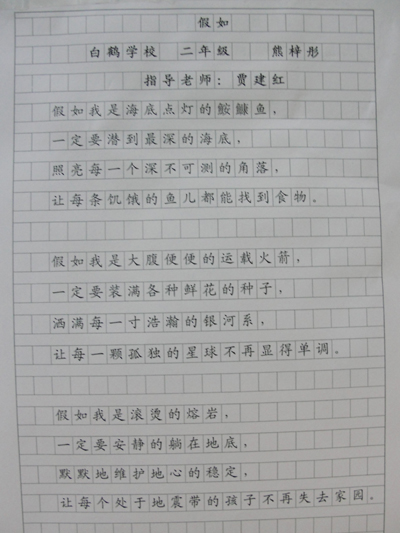 假如
白鹤学校 二年级 熊梓彤
指导老师：贾建红
假如我是海底点灯的鮟鱇鱼，
一定要潜到最深的海底，
照亮每一个深不可测的角落，
让每条饥饿的鱼儿都能找到食物。
假如我是大腹便便的运载火箭，
一定要装满各种鲜花的种子，
洒满每一寸浩瀚的银河系，
让每一颗孤独的星球不再显得单调。
假如我是滚烫的熔岩，
一定要安静的躺在地底，
默默地维护地心的稳定，
让每个处于地震带的孩子不再失去家园。